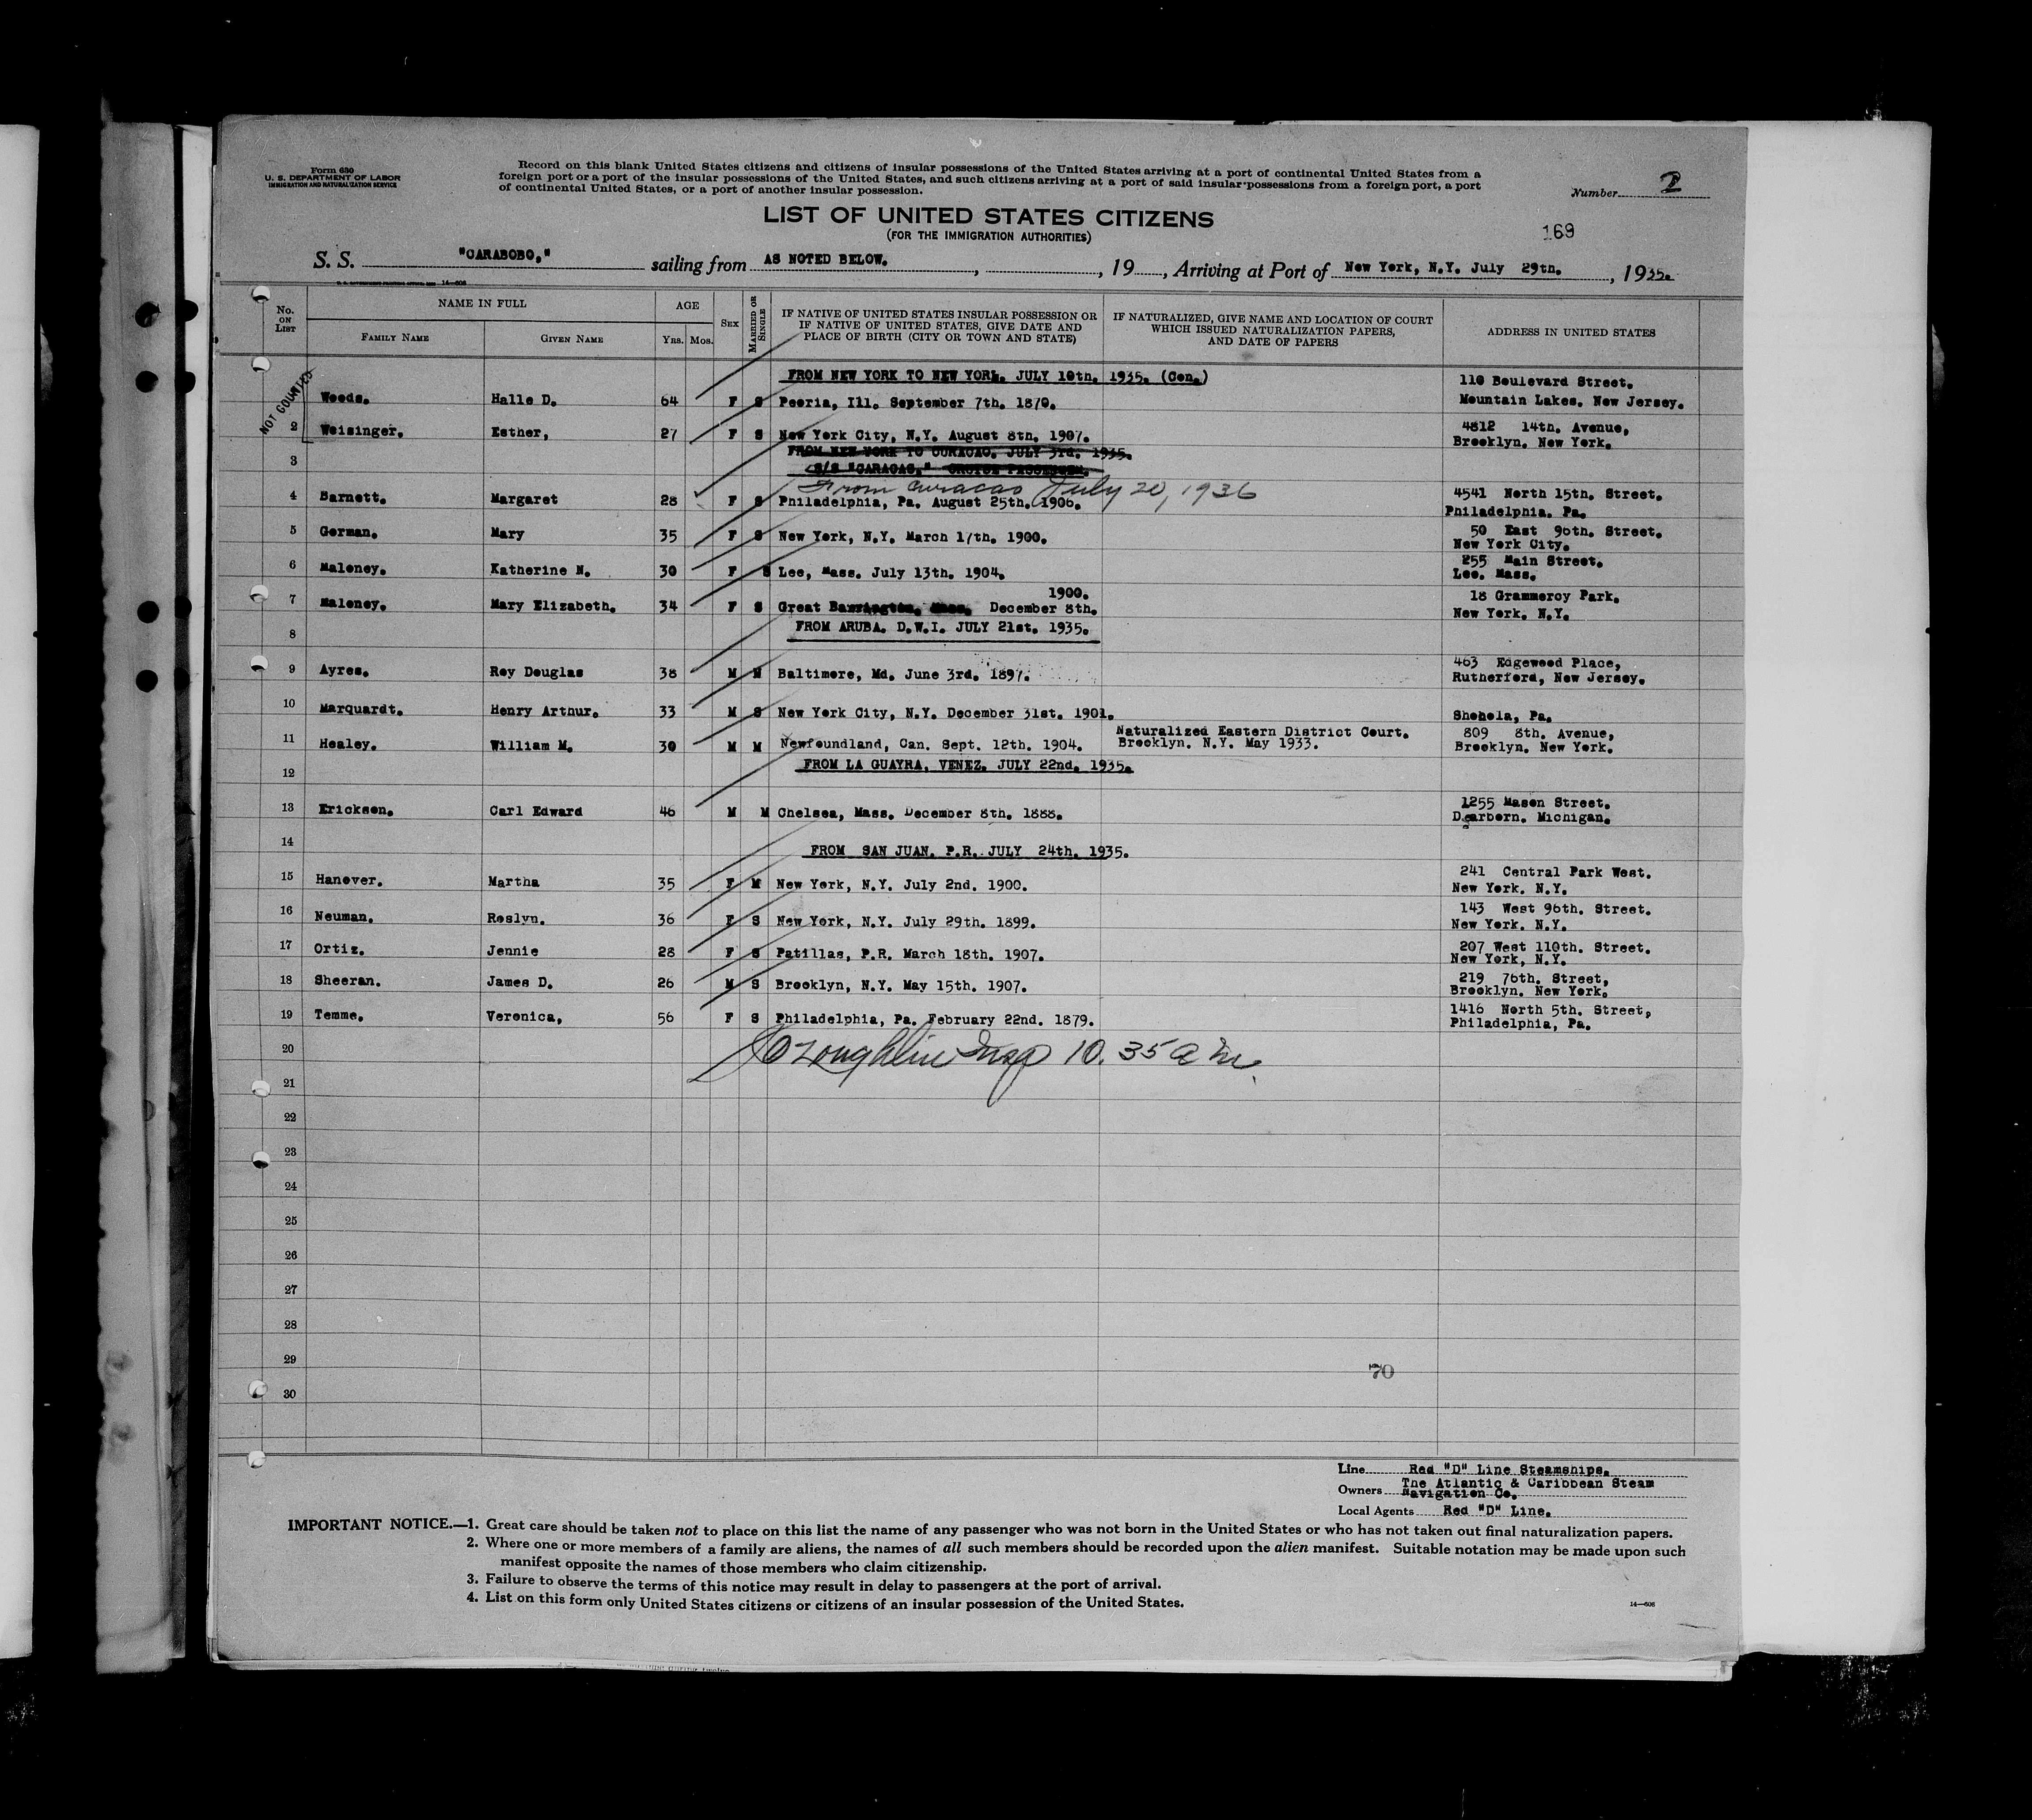 Form 630
U. S. DEPARTMENT OF LABOR
IMMIGRATION AND NATURALIZATION SERVICE
Record on this blank United States citizens and citizens of insular possessions of the United States arriving at a port of continental United States from a
foreign port or a port of the insular possessions of the United States, and such citizens arriving at a port of said insular possessions from a foreign port, a port
of continental United States, or a port of another insular possession.
Number 2
LIST OF UNITED STATES CITIZENS
(FOR THE IMMIGRATION AUTHORITIES)
169
S. S. "CARABOBO," sailing from AS NOTED BELOW. , , 19 , Arriving at Port of New York, N.Y. July 29th. , 1935.
14—608
No. ON LIST NAME IN FULL AGE SEX MARRIED OR SINGLE IF NATIVE OF UNITED STATES INSULAR POSSESSION OR IF NATIVE OF UNITED STATES, GIVE DATE AND PLACE OF BIRTH (CITY OR TOWN AND STATE) IF NATURALIZED, GIVE NAME AND LOCATION OF COURT WHICH ISSUED NATURALIZATION PAPERS, AND DATE OF PAPERS ADDRESS IN UNITED STATES
FAMILY NAME GIVEN NAME YRS. MOS.
NOT COUNTED
FROM NEW YORK TO NEW YORK. JULY 10th. 1935. (Con.)
110 Boulevard Street.
Woods. Halle D. 64 F S Peoria, Ill. September 7th. 1870. Mountain Lakes. New Jersey.
2 Weisinger. Esther, 27 F S New York City, N.Y. August 8th. 1907. 4812 14th. Avenue,
Brooklyn. New York.
FROM NEW YORK TO CURACAO. JULY 3rd. 1935.
3 S/S "CARACAS," CRUISE PASSENGER.
From Curacao July 20, 1936
4 Barnett. Margaret 28 F S Philadelphia, Pa. August 25th. 1906. 4541 North 15th. Street.
Philadelphia. Pa.
5 Gorman. Mary 35 F S New York, N.Y. March 17th. 1900. 50 East 96th. Street.
New York City.
6 Maloney. Katherine N. 30 F S Lee, Mass. July 13th. 1904. 255 Main Street.
Lee. Mass.
1900.
7 Maloney. Mary Elizabeth. 34 F S Great Barrington. Mass. December 8th. 18 Grammercy Park.
New York. N.Y.
8 FROM ARUBA. D.W.I. JULY 21st. 1935.
9 Ayres. Roy Douglas 38 M M Baltimore, Md. June 3rd. 1897. 463 Edgewood Place,
Rutherford, New Jersey.
10 Marquardt. Henry Arthur. 33 M S New York City, N.Y. December 31st. 1901. Shohola, Pa.
11 Healey. William M. 30 M M Newfoundland, Can. Sept. 12th. 1904. Naturalized Eastern District Court. 809 8th. Avenue,
Brooklyn. N.Y. May 1933. Brooklyn. New York.
12 FROM LA GUAYRA. VENEZ. JULY 22nd. 1935.
13 Erickson. Carl Edward 46 M M Chelsea, Mass. December 8th. 1888. 1255 Mason Street.
Dearborn. Michigan.
14 FROM SAN JUAN. P.R. JULY 24th. 1935.
15 Hanover. Martha 35 F M New York, N.Y. July 2nd. 1900. 241 Central Park West.
New York. N.Y.
16 Neuman. Roslyn. 36 F S New York, N.Y. July 29th. 1899. 143 West 96th. Street.
New York. N.Y.
17 Ortiz. Jennie 28 F S Patillas, P.R. March 18th. 1907. 207 West 110th. Street.
New York, N.Y.
18 Sheeran. James D. 26 M S Brooklyn, N.Y. May 15th. 1907. 219 76th. Street,
Brooklyn. New York.
19 Temme. Veronica, 56 F S Philadelphia, Pa. February 22nd. 1879. 1416 North 5th. Street,
Philadelphia, Pa.
20 Loughlin Insp 10.35 a m.
21
22
23
24
25
26
27
28
29
70
30
Line Red "D" Line Steamships.
Owners The Atlantic & Caribbean Steam
Navigation Co.
Local Agents Red "D" Line.
IMPORTANT NOTICE.—1. Great care should be taken not to place on this list the name of any passenger who was not born in the United States or who has not taken out final naturalization papers.
2. Where one or more members of a family are aliens, the names of all such members should be recorded upon the alien manifest. Suitable notation may be made upon such
manifest opposite the names of those members who claim citizenship.
3. Failure to observe the terms of this notice may result in delay to passengers at the port of arrival.
4. List on this form only United States citizens or citizens of an insular possession of the United States.
14—608